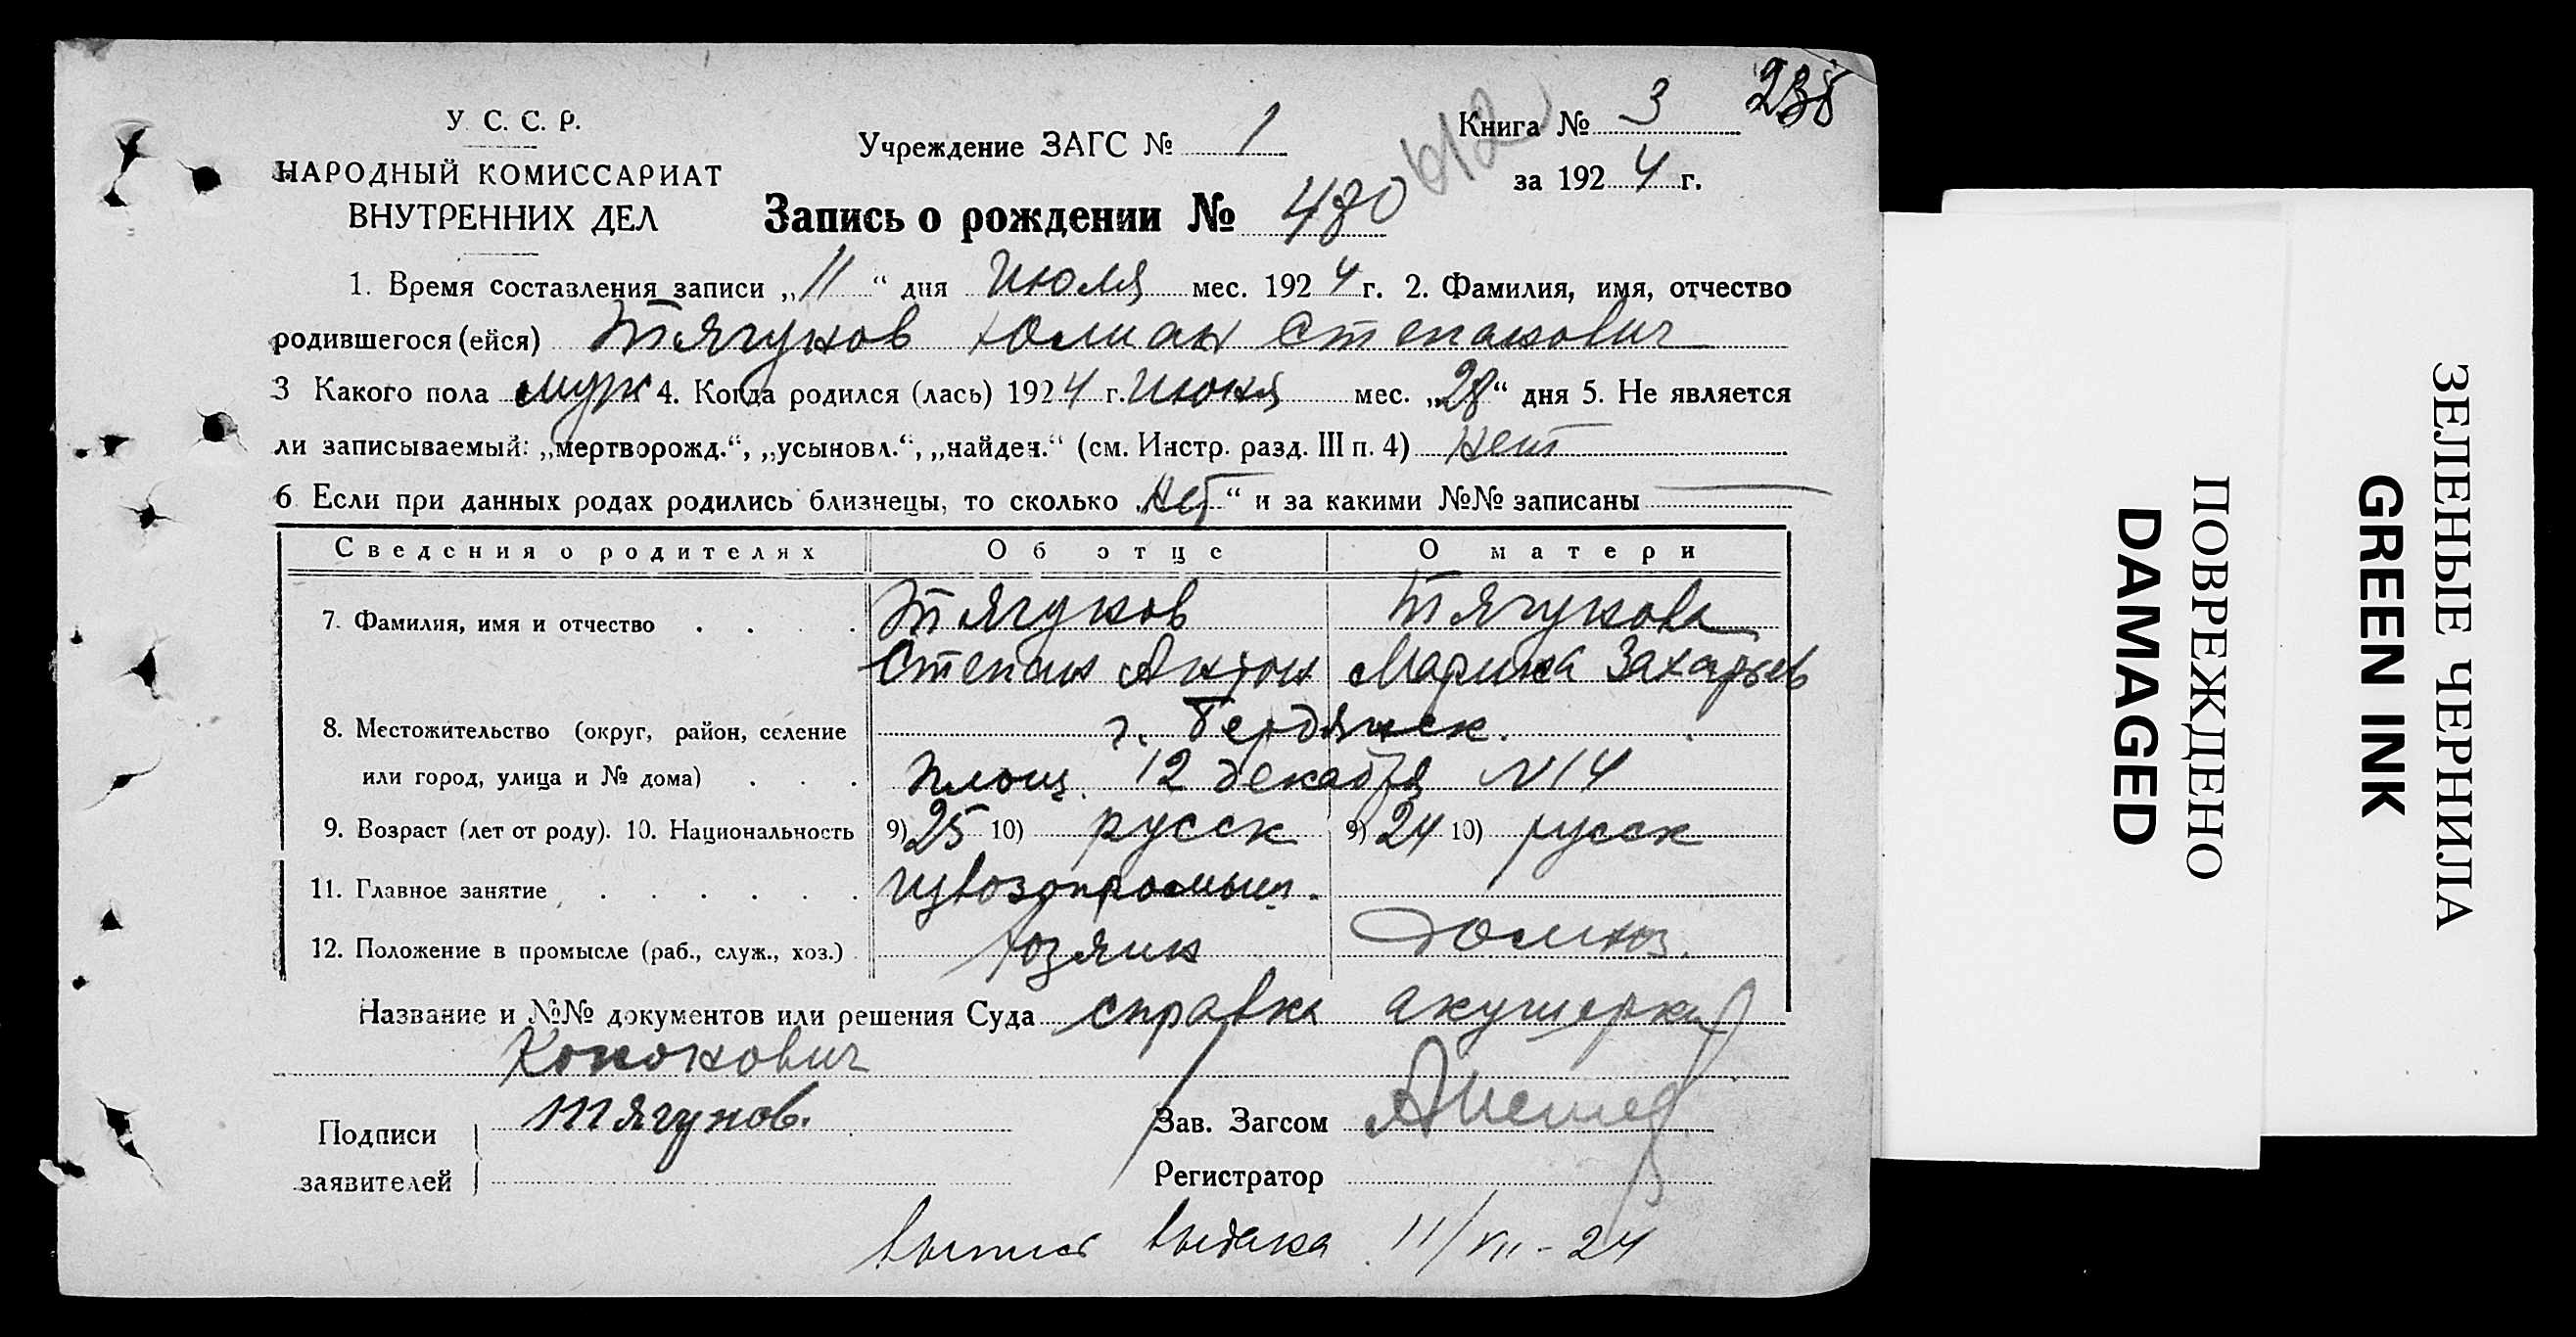 238
У. С. С. Р.
НАРОДНЫЙ КОМИССАРИАТ
ВНУТРЕННИХ ДЕЛ
Учреждение ЗАГС № 1
Книга № 3
за 1924 г.
612
Запись о рождении № 480
1. Время составления записи „11“ дня июля мес. 1924 г. 2. Фамилия, имя, отчество
родившегося (ейся) Тягунов Юлиан Степанович
3 Какого пола муж 4. Когда родился (лась) 1924 г. июня мес. „28“ дня 5. Не является
ли записываемый: „мертворожд.“, „усыновл.“, „найден.“ (см. Инстр. разд. III п. 4) нет
6. Если при данных родах родились близнецы, то сколько „нет“ и за какими №№ записаны —
Сведения о родителях Об отце О матери
7. Фамилия, имя и отчество . . . . Тягунов Тягунова
Степан Антон Марина Захарьев
8. Местожительство (округ, район, селение г. Бердянск.
или город, улица и № дома) . . . площ. 12 декабря N 14
9. Возраст (лет от роду). 10. Национальность 9) 25 10) русск 9) 24 10) русск
11. Главное занятие . . . . . . Извозопромыш.
12. Положение в промысле (раб., служ., хоз.) . хозяин домхоз.
Название и №№ документов или решения Суда справка акушерки
Кононович
Подписи заявителей Тягунов.
Зав. Загсом
Регистратор
выпись выдана 11/VII - 24
ПОВРЕЖДЕНО
DAMAGED
ЗЕЛЕНЫЕ ЧЕРНИЛА
GREEN INK